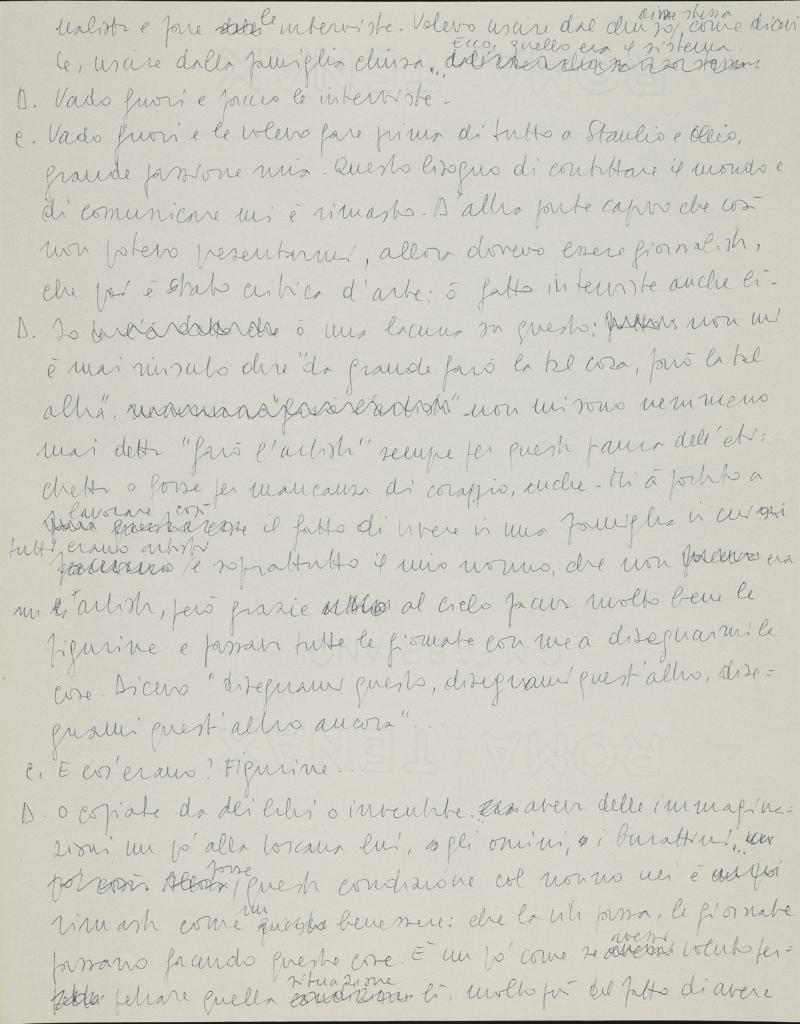 nalista e fare le interviste. Volevo uscire dal chiuso, come dicevi
te, uscire dalla famiglia chiusa... Ecco, quello era il sistema.
D. Vado fuori e faccio le interviste.
C. Vado fuori e le volevo fare prima di tutto a Stanlio e Ollio,
grande passione mia. Questo bisogno di contattare il mondo e
di comunicare mi è rimasto. D'altra parte capivo che così
non potevo presentarmi, allora dovevo essere giornalista,
che poi è stato critica d'arte: ò fatto interviste anche lì.
D. Io ò una lacuna su questo: non mi
è mai riuscito dire "da grande farò la tal cosa, farò la tal
altra", non mi sono nemmeno
mai detta "farò l'artista" sempre per questa paura dell'eti-
chetta o forse per mancanza di coraggio, anche. Mi à portato a
lavorare così il fatto di vivere in una famiglia in cui
tutti erano artisti e soprattutto il mio nonno, che non era
un artista, però grazie al cielo faceva molto bene le
figurine e passava tutte le giornate con me a disegnarmi le
cose. Dicevo "disegnami questo, disegnami quest'altro, dise-
gnami quest'altro ancora"...
C. E cos'erano? Figurine...
D. O copiate da dei libri o inventate. aveva delle immagina-
zioni un po' alla toscana lui, gli omini, i burattini...
forse questa condizione col nonno mi è
rimasta come un benessere: che la vita passa, le giornate
passano facendo queste cose. È un po' come se avessi voluto per-
petuare quella situazione lì, molto più del fatto di avere